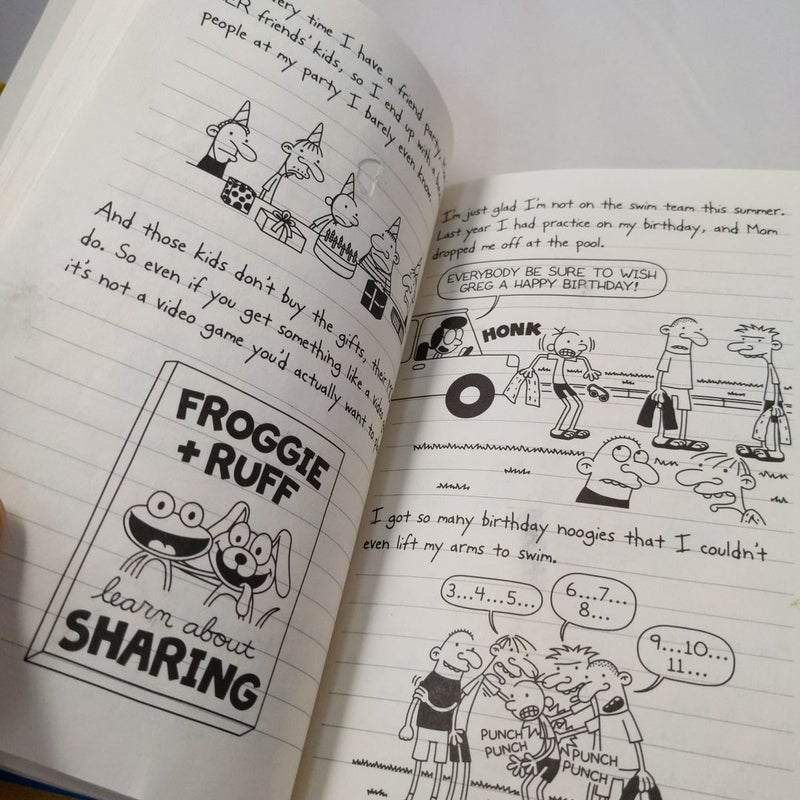 ery time I have a friend party,
ER friends' kids, so I end up with a
people at my party I barely even know.
And those kids don't buy the gifts, their
do. So even if you get something like a video
it's not a video game you'd actually want to
FROGGIE
+ RUFF
learn about
SHARING
I'm just glad I'm not on the swim team this summer.
Last year I had practice on my birthday, and Mom
dropped me off at the pool.
EVERYBODY BE SURE TO WISH
GREG A HAPPY BIRTHDAY!
HONK
I got so many birthday noogies that I couldn't
even lift my arms to swim.
3...4...5...
6...7...
8...
9...10...
11...
PUNCH
PUNCH
PUNCH
PUNCH